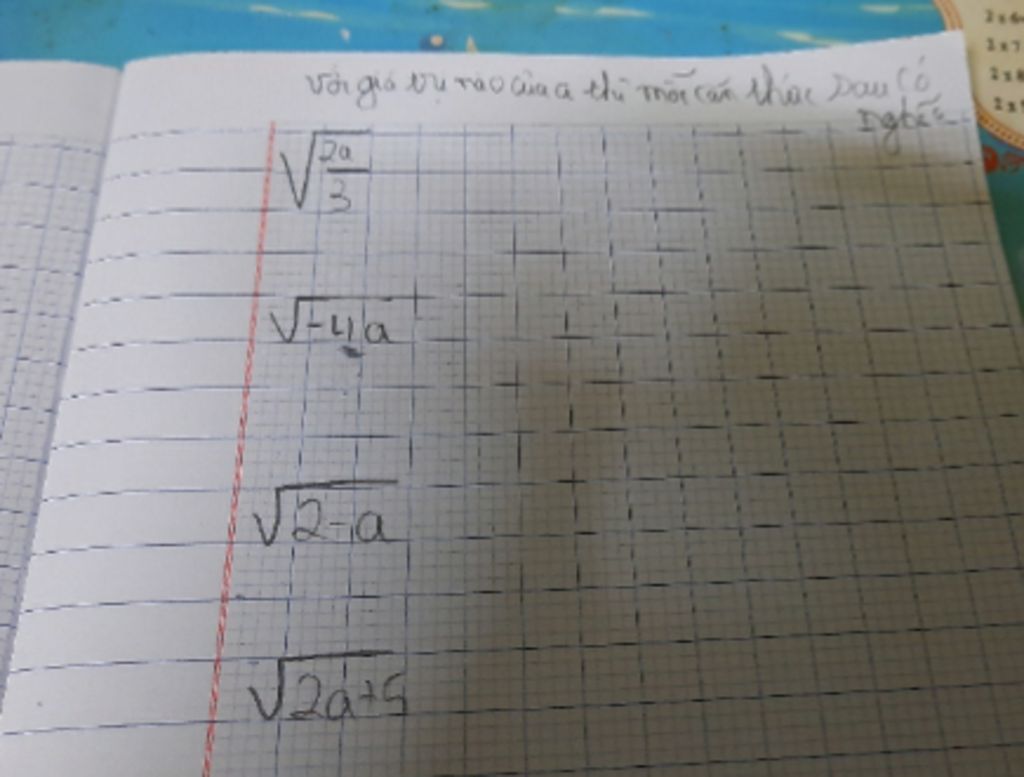 Với giá trị nào của a thì mỗi căn thức sau có
nghĩa
√(2a/3)
√-4a
√2-a
√2a+5
2x6
2x7
2x8
2x9